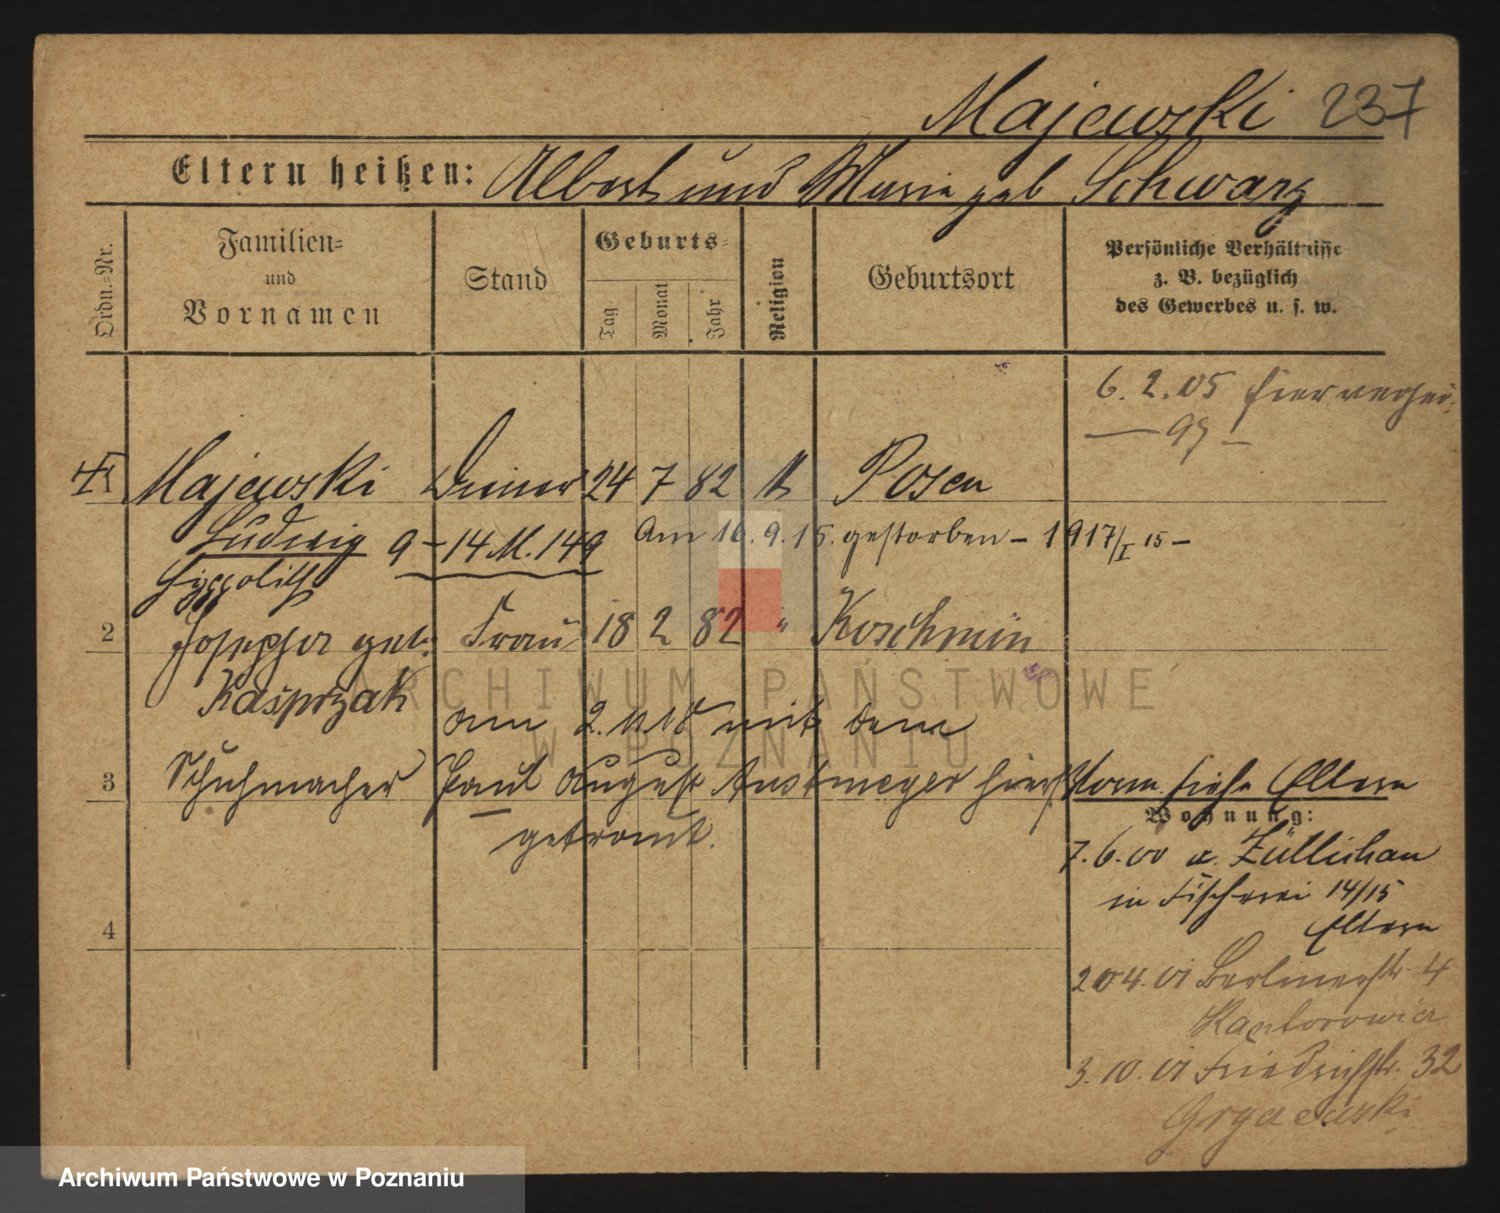 Majewski 237
Eltern heißen: Albert und Marie geb Schwarz
Ordn.-Nr.
Familien-
und
Vornamen
Stand
Geburts-
Tag
Monat
Jahr
Religion
Geburtsort
Persönliche Verhältnisse
z. B. bezüglich
des Gewerbes u. s. w.
6. 2. 05 hier
Majewski Diener 24 7 82 k Posen
Ludwig 9-14 M. 149 Am 16.9.15. gestorben - 1917/I 15 -
Hyppolith
2 Josepha geb. Frau 18 2 82 " Koschmin
Kasprzak am mit dem
3 Schuhmacher Paul August hier
getraut.
Vorm. siehe Eltern
Wohnung:
7.6.00 a. Züllichau
in Fischerei 14/15
Eltern
4
Berlinerstr. 4
Kantorowicz
3.10.01 Friedrichstr. 32
ARCHIWUM PAŃSTWOWE
W POZNANIU
Archiwum Państwowe w Poznaniu